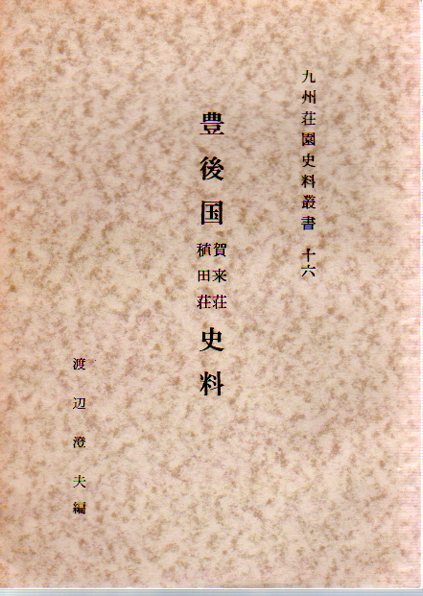 九州荘園史料叢書 十六
豊後国 賀来荘 稙田荘 史料
渡辺澄夫編